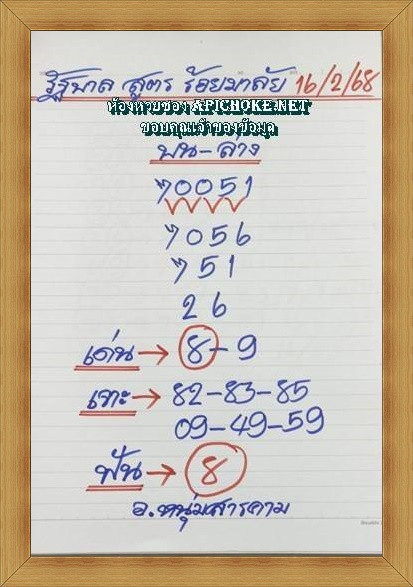 รัฐบาล สูตร ร้อยมาลัย 16/2/68
ห้องหวยซอง APICHOKE.NET
ขอบคุณเจ้าของข้อมูล
บน-ล่าง
70051
7056
751
26
เด่น→8-9
เจาะ→82-83-85
09-49-59
ฟัน→8
อ.หนุ่มสารคาม